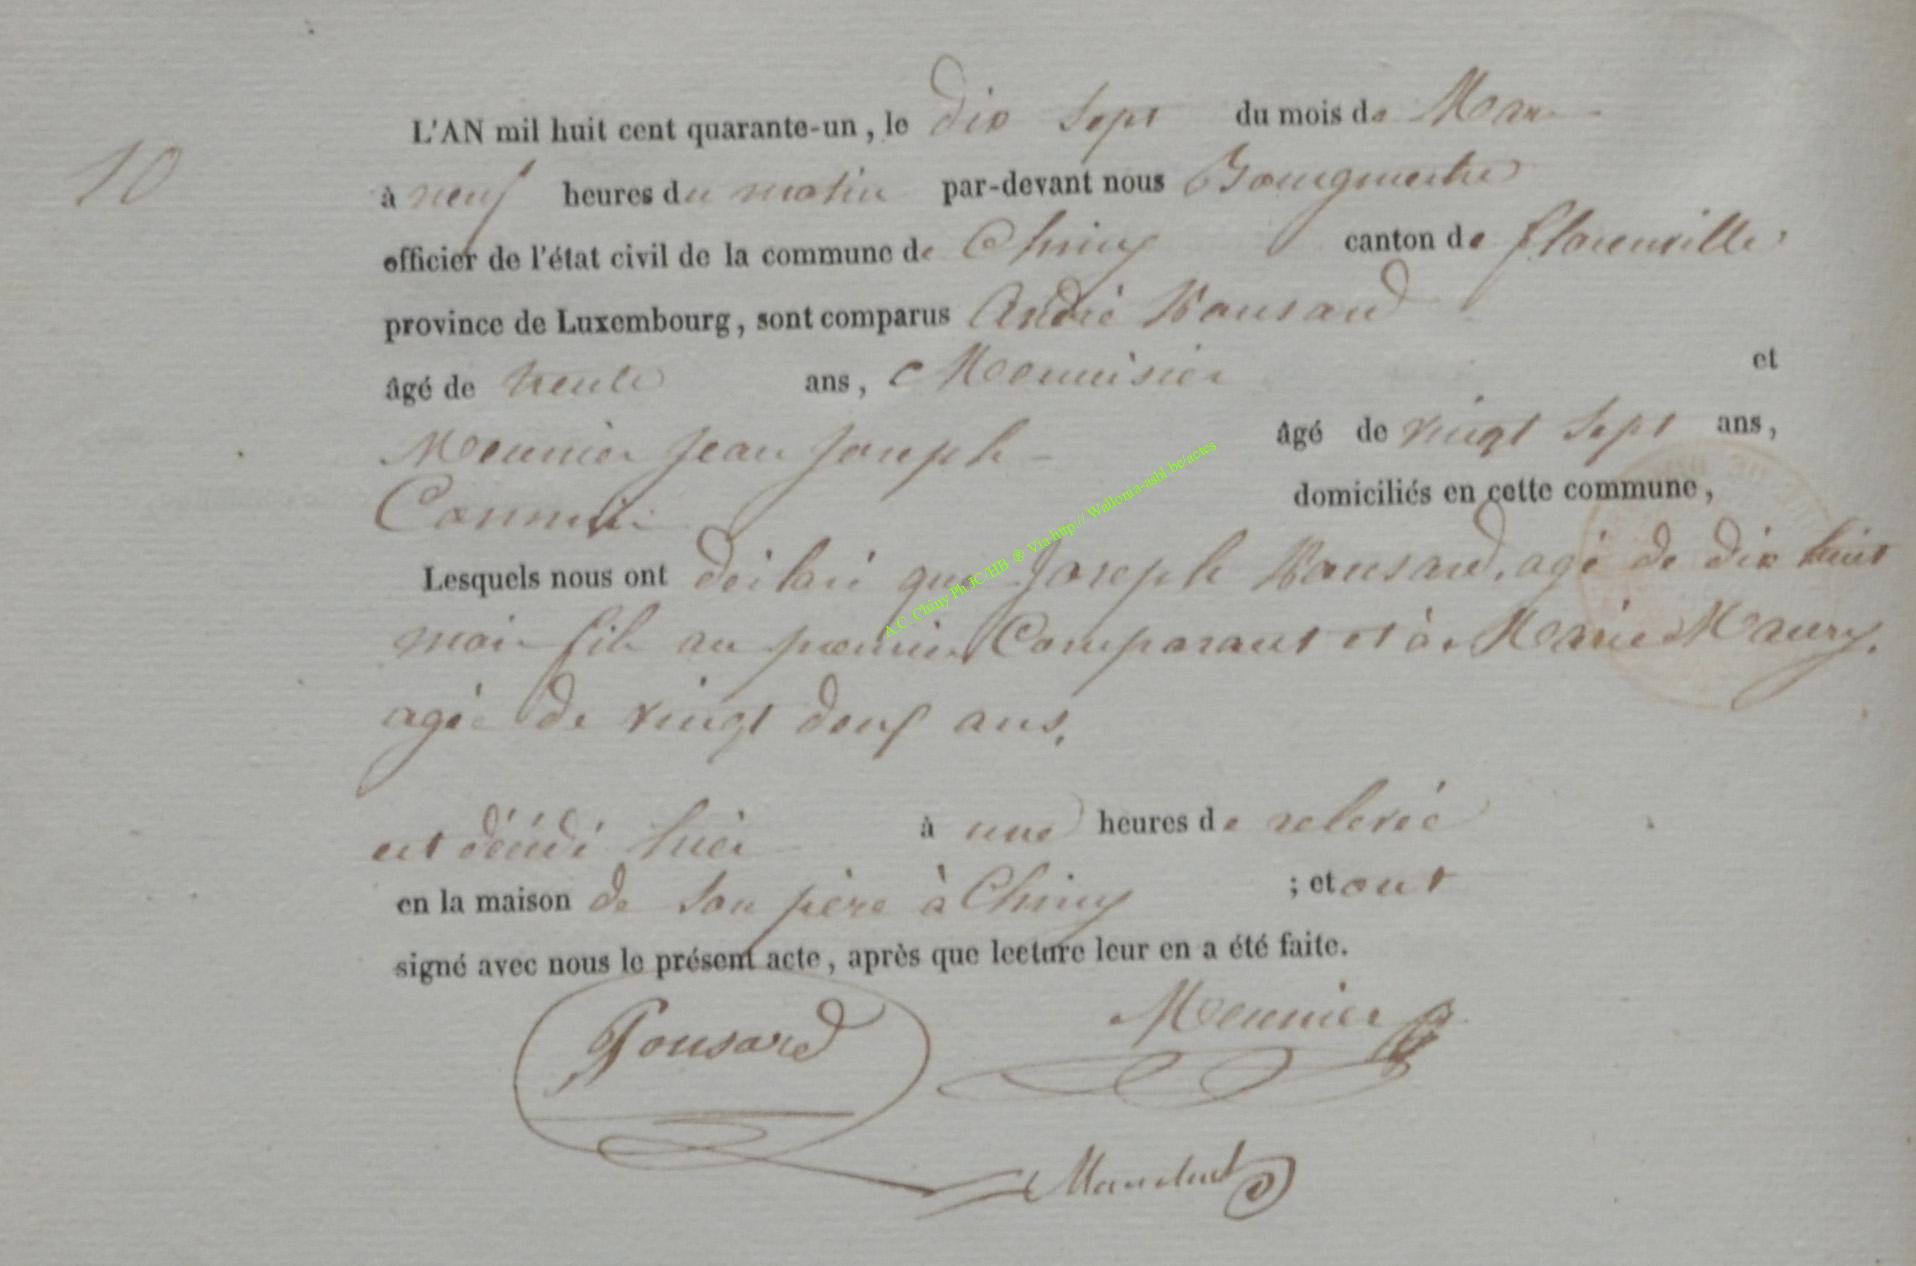 10
L'AN mil huit cent quarante-un, le dix sept du mois de Mars
à neuf heures du matin par-devant nous Bourgmestre
officier de l'état civil de la commune de Chiny canton de florenville,
province de Luxembourg, sont comparus André Pousard
âgé de trente ans, Menuisier et
Meunier Jean Joseph âgé de vingt sept ans,
domiciliés en cette commune,
Lesquels nous ont déclaré que Joseph Pousard, agé de dix huit
mois fils au premier Comparant et à Marie Maury,
agée de vingt ans,
est décédé hier à une heures de relevée
en la maison de son père à Chiny ; et ont
signé avec nous le présent acte, après que lecture leur en a été faite.
Pousard Meunier
A.C. Chiny Ph JC/HB @ Via http:// Wallonia-asbl.be/actes